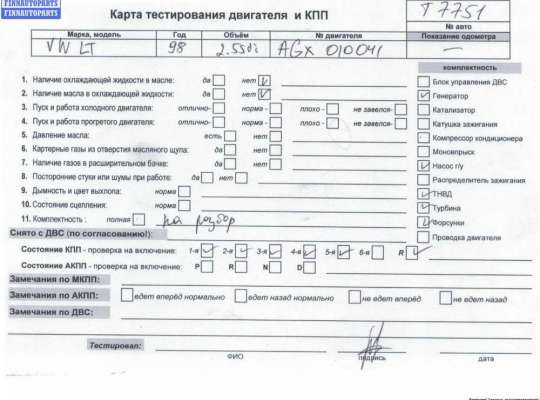 FINNAUTOPARTS
FINNAUTOPARTS
Карта тестирования двигателя и КПП
T7751
№ авто
Марка, модель Год Объём № двигателя Показание одометра
VW LT 98 2.5Sdi AGX 010041 —
комплектность
1. Наличие охлаждающей жидкости в масле: да нет
2. Наличие масла в охлаждающей жидкости: да нет
3. Пуск и работа холодного двигателя: отлично- норма - плохо - не завелся-
4. Пуск и работа прогретого двигателя: отлично- норма - плохо - не завелся-
5. Давление масла: есть нет
6. Картерные газы из отверстия масляного щупа: да нет
7. Наличие газов в расширительном бачке: да нет
8. Посторонние стуки или шумы при работе: да нет
9. Дымность и цвет выхлопа: норма
10. Состояние сцепления: норма
11. Комплектность : полная на разбор
Блок управления ДВС
Генератор
Катализатор
Катушка зажигания
Компрессор кондиционера
Моновпрыск
Насос г/у
Распределитель зажигания
ТНВД
Турбина
Форсунки
Проводка двигателя
Снято с ДВС (по согласованию!):
Состояние КПП - проверка на включение: 1-я 2-я 3-я 4-я 5-я 6-я R
Состояние АКПП - проверка на включение: P R N D
Замечания по МКПП:
Замечания по АКПП: едет вперёд нормально едет назад нормально не едет вперёд не едет назад
Замечания по ДВС:
Тестировал:
ФИО подпись дата